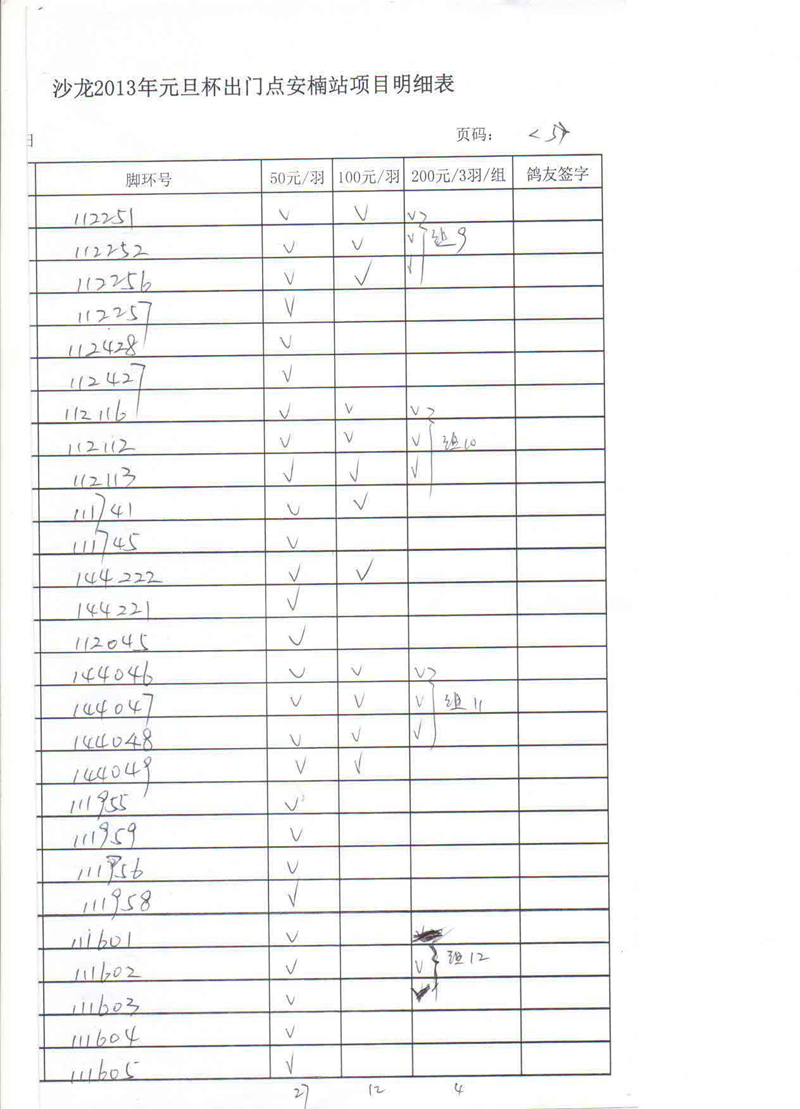 沙龙2013年元旦杯出门点安楠站项目明细表
日 页码： <5>
脚环号 50元/羽 100元/羽 200元/3羽/组 鸽友签字
112251 √ √ √
112252 √ √ √ 组9
112256 √ √ √
112257 √
112428 √
112427 √
112116 √ √ √
112112 √ √ √ 组10
112113 √ √ √
111741 √ √
111745 √
144222 √ √
144221 √
112045 √
144046 √ √ √
144047 √ √ √ 组11
144048 √ √ √
144049 √ √
111955 √
111959 √
111956 √
111958 √
111601 √
111602 √ √ 组12
111603 √ √
111604 √
111605 √
27 12 4